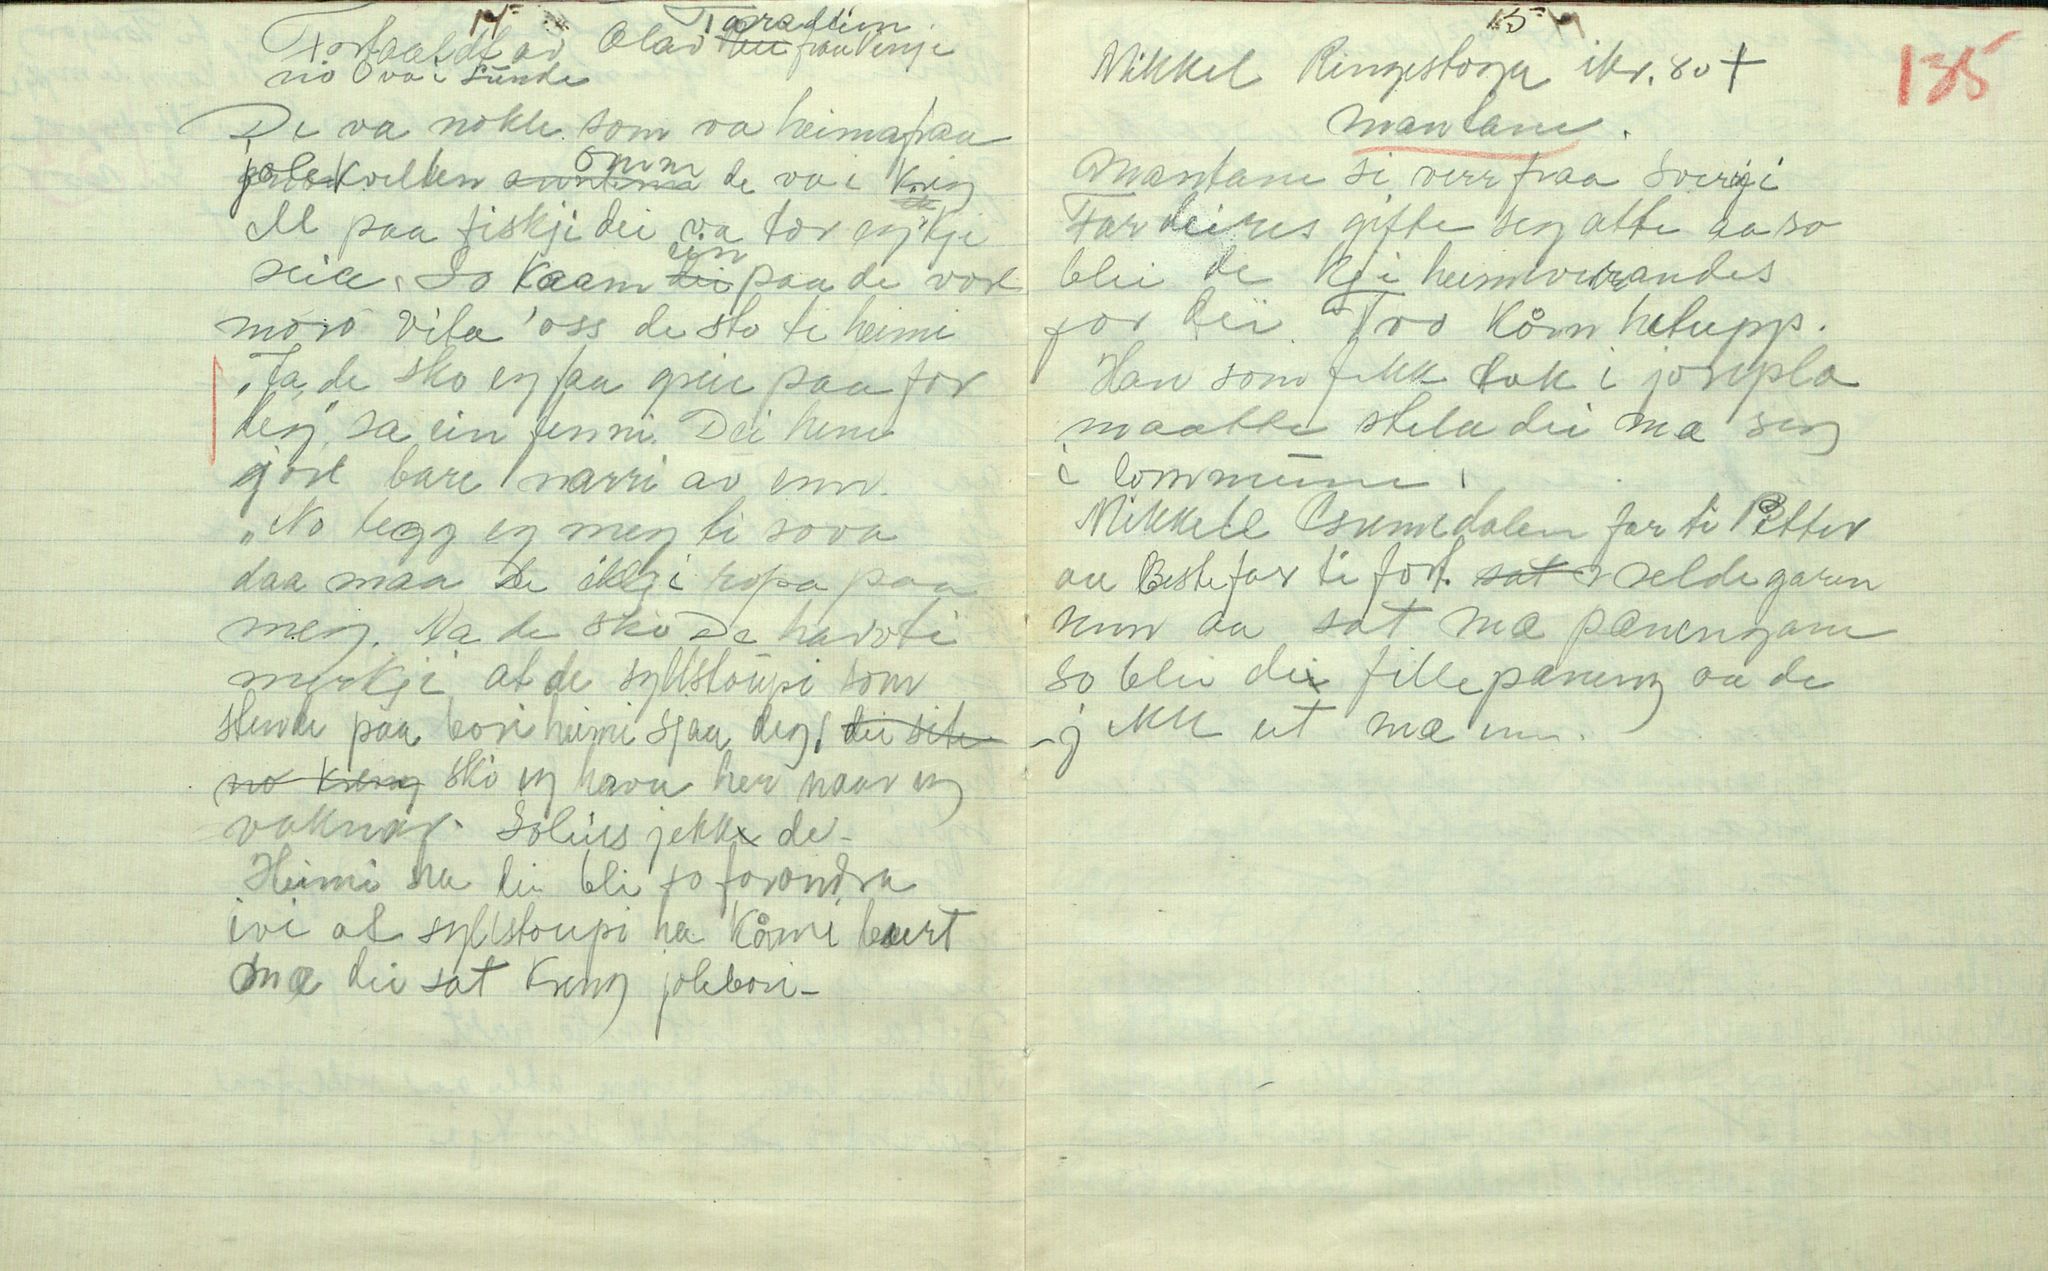 14
Fortaaldt av Olav Tarraldlien
fraa Vinje
no Ova i Sunde
De va nokle som va heimafraa
jolekvelden omm de va i Krig
ell paa fiskji dei va tor eg 'kje
seia. So kaam ein paa de vort
moro vita 'oss de sto te heimi
"Ja, de sko eg faa greie paa for
deg", sa ein finni. Dei heve
gjort bare narri av enn.
"No legg eg meg ti sova
daa maa De ikkji ropa paa
meg. Aa de sko De hava ti
myrkji at de syltstoupi som
stende paa bori heimi sjaa deg, dei site
no kring sko eg hava her naar eg
vaknar. Soleies jekk de -
Heimi ha dei bli so forondra
ivi at syltstoupi ha kåmi burt
mæ dei sat kring jolebori -
15
135
Mikkel Ringestogu ikr. 80 +
Mantane.
Mantane si verr fraa Sverigi
Far deires gifte seg atte aa so
blei de kji heimverandes
for dei. Tvo kånn helupp.
Han som fekk tak i jorepla
maatte stela dei mæ seg
i lommune.
Mikkell Øsumdalen far ti Petter
au Bestefar ti fort. sat selde garen
senn aa sat mæ panengane
so blei dei fillepaneng aa de
jekk ut mæ enn.